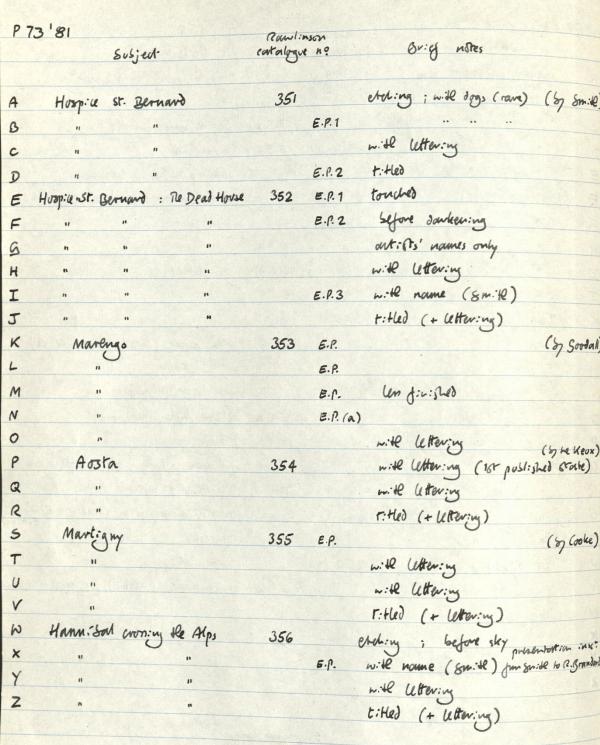 P 73 '81
Subject Rawlinson catalogue nº Brief notes
A Hospice St. Bernard 351 etching ; with dogs (rare) (by Smith)
B " " E.P.1 " " "
C " " with lettering
D " " E.P.2 titled
E Hospice St. Bernard : The Dead House 352 E.P.1 touched
F " " " E.P.2 before darkening
G " " " artists' names only
H " " " with lettering
I " " " E.P.3 with name (Smith)
J " " " titled (+ lettering)
K Marengo 353 E.P. (by Goodall)
L " E.P.
M " E.P. less finished
N " E.P. (a)
O " with lettering
P Aosta 354 with lettering (1st published state) (by Le Keux)
Q " with lettering
R " titled (+ lettering)
S Martigny 355 E.P. (by Cooke)
T " with lettering
U " with lettering
V " titled (+ lettering)
W Hannibal crossing the Alps 356 etching ; before sky
X " " E.P. with name (Smith) presentation from Smith to R.
Y " " with lettering
Z " " titled (+ lettering)